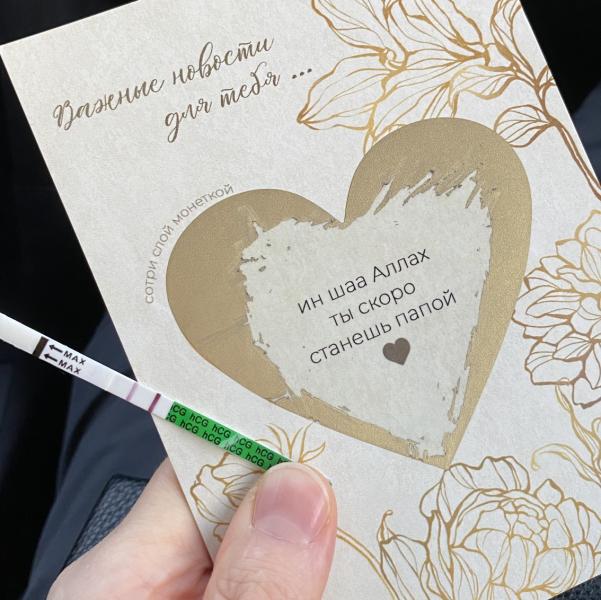 Важные новости
для тебя ...
сотри слой монеткой
ин шаа Аллах
ты скоро
станешь папой
MAX
MAX
hCG hCG hCG hCG hCG hCG
hCG hCG hCG hCG hCG